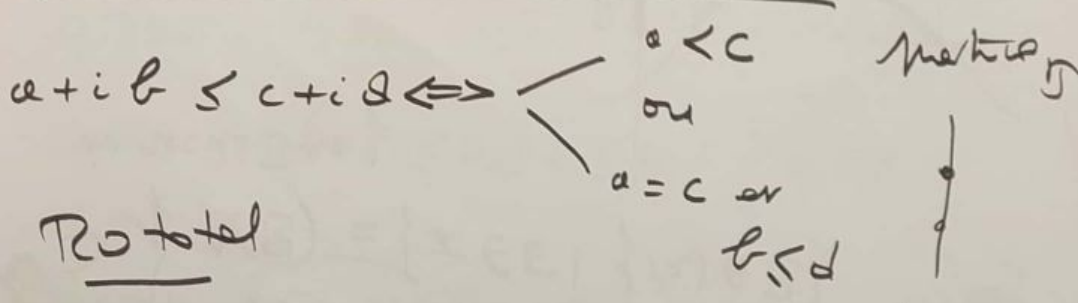 a + i b ≤ c + i d ⟺ a < c
ou
a = c et
b ≤ d
RO total